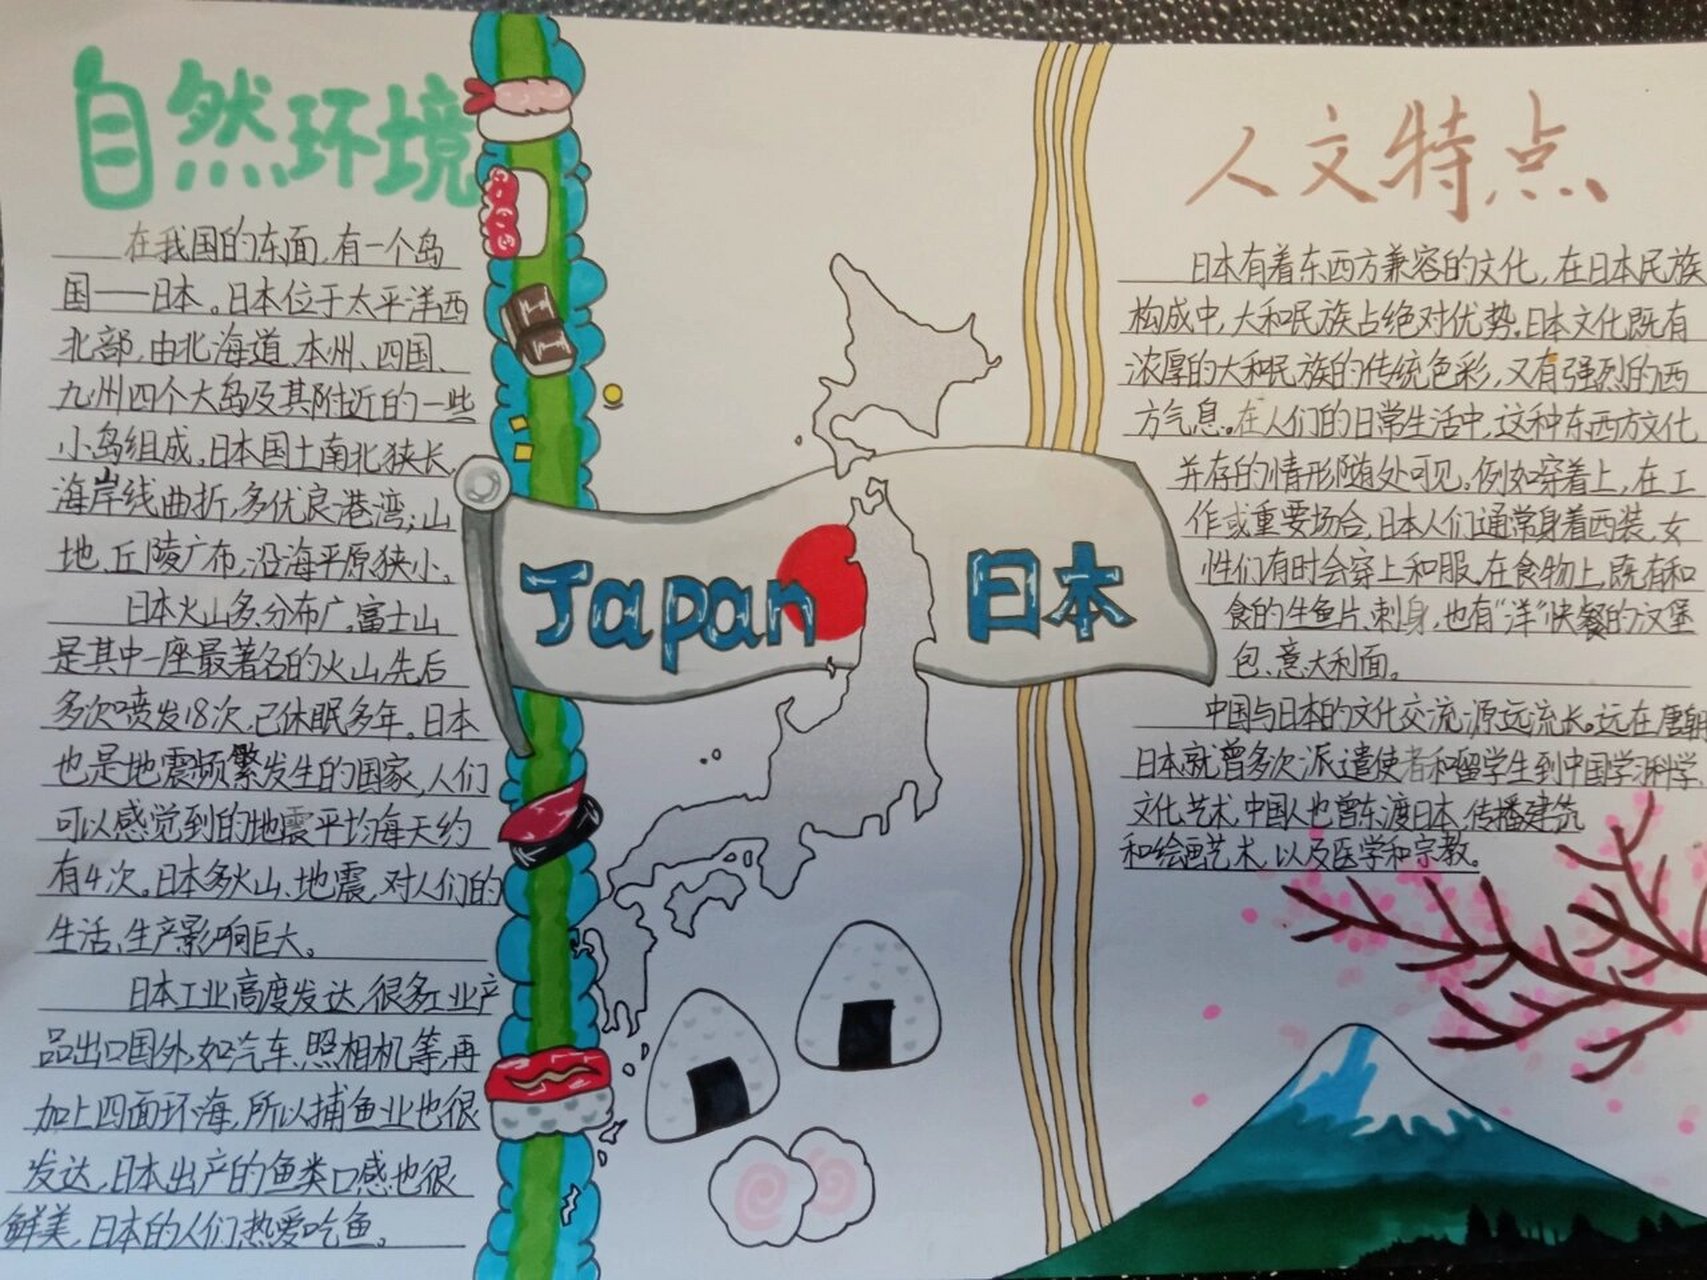 自然环境
在我国的东面,有一个岛
国——日本。日本位于太平洋西
北部,由北海道、本州、四国、
九州四个大岛及其附近的一些
小岛组成。日本国土南北狭长,
海岸线曲折,多优良港湾;山
地、丘陵广布,沿海平原狭小。
日本火山多,分布广。富士山
是其中一座最著名的火山,先后
多次喷发18次,已休眠多年。日本
也是地震频繁发生的国家,人们
可以感觉到的地震平均每天约
有4次。日本多火山、地震,对人们的
生活、生产影响巨大。
日本工业高度发达,很多工业产
品出口国外,如汽车、照相机等,再
加上四面环海,所以捕鱼业也很
发达,日本出产的鱼类口感也很
鲜美,日本的人们热爱吃鱼。
Japan
日本
人文特点
日本有着东西方兼容的文化,在日本民族
构成中,大和民族占绝对优势。日本文化既有
浓厚的大和民族的传统色彩,又有强烈的西
方气息。在人们的日常生活中,这种东西方文化
并存的情形随处可见。例如穿着上,在工
作或重要场合,日本人们通常身着西装,女
性们有时会穿上和服。在食物上,既有和
食的生鱼片、刺身,也有“洋”快餐的汉堡
包、意大利面。
中国与日本的文化交流源远流长。远在唐朝
日本就曾多次派遣使者和留学生到中国学习科学
文化艺术,中国人也曾东渡日本,传播建筑
和绘画艺术,以及医学和宗教。